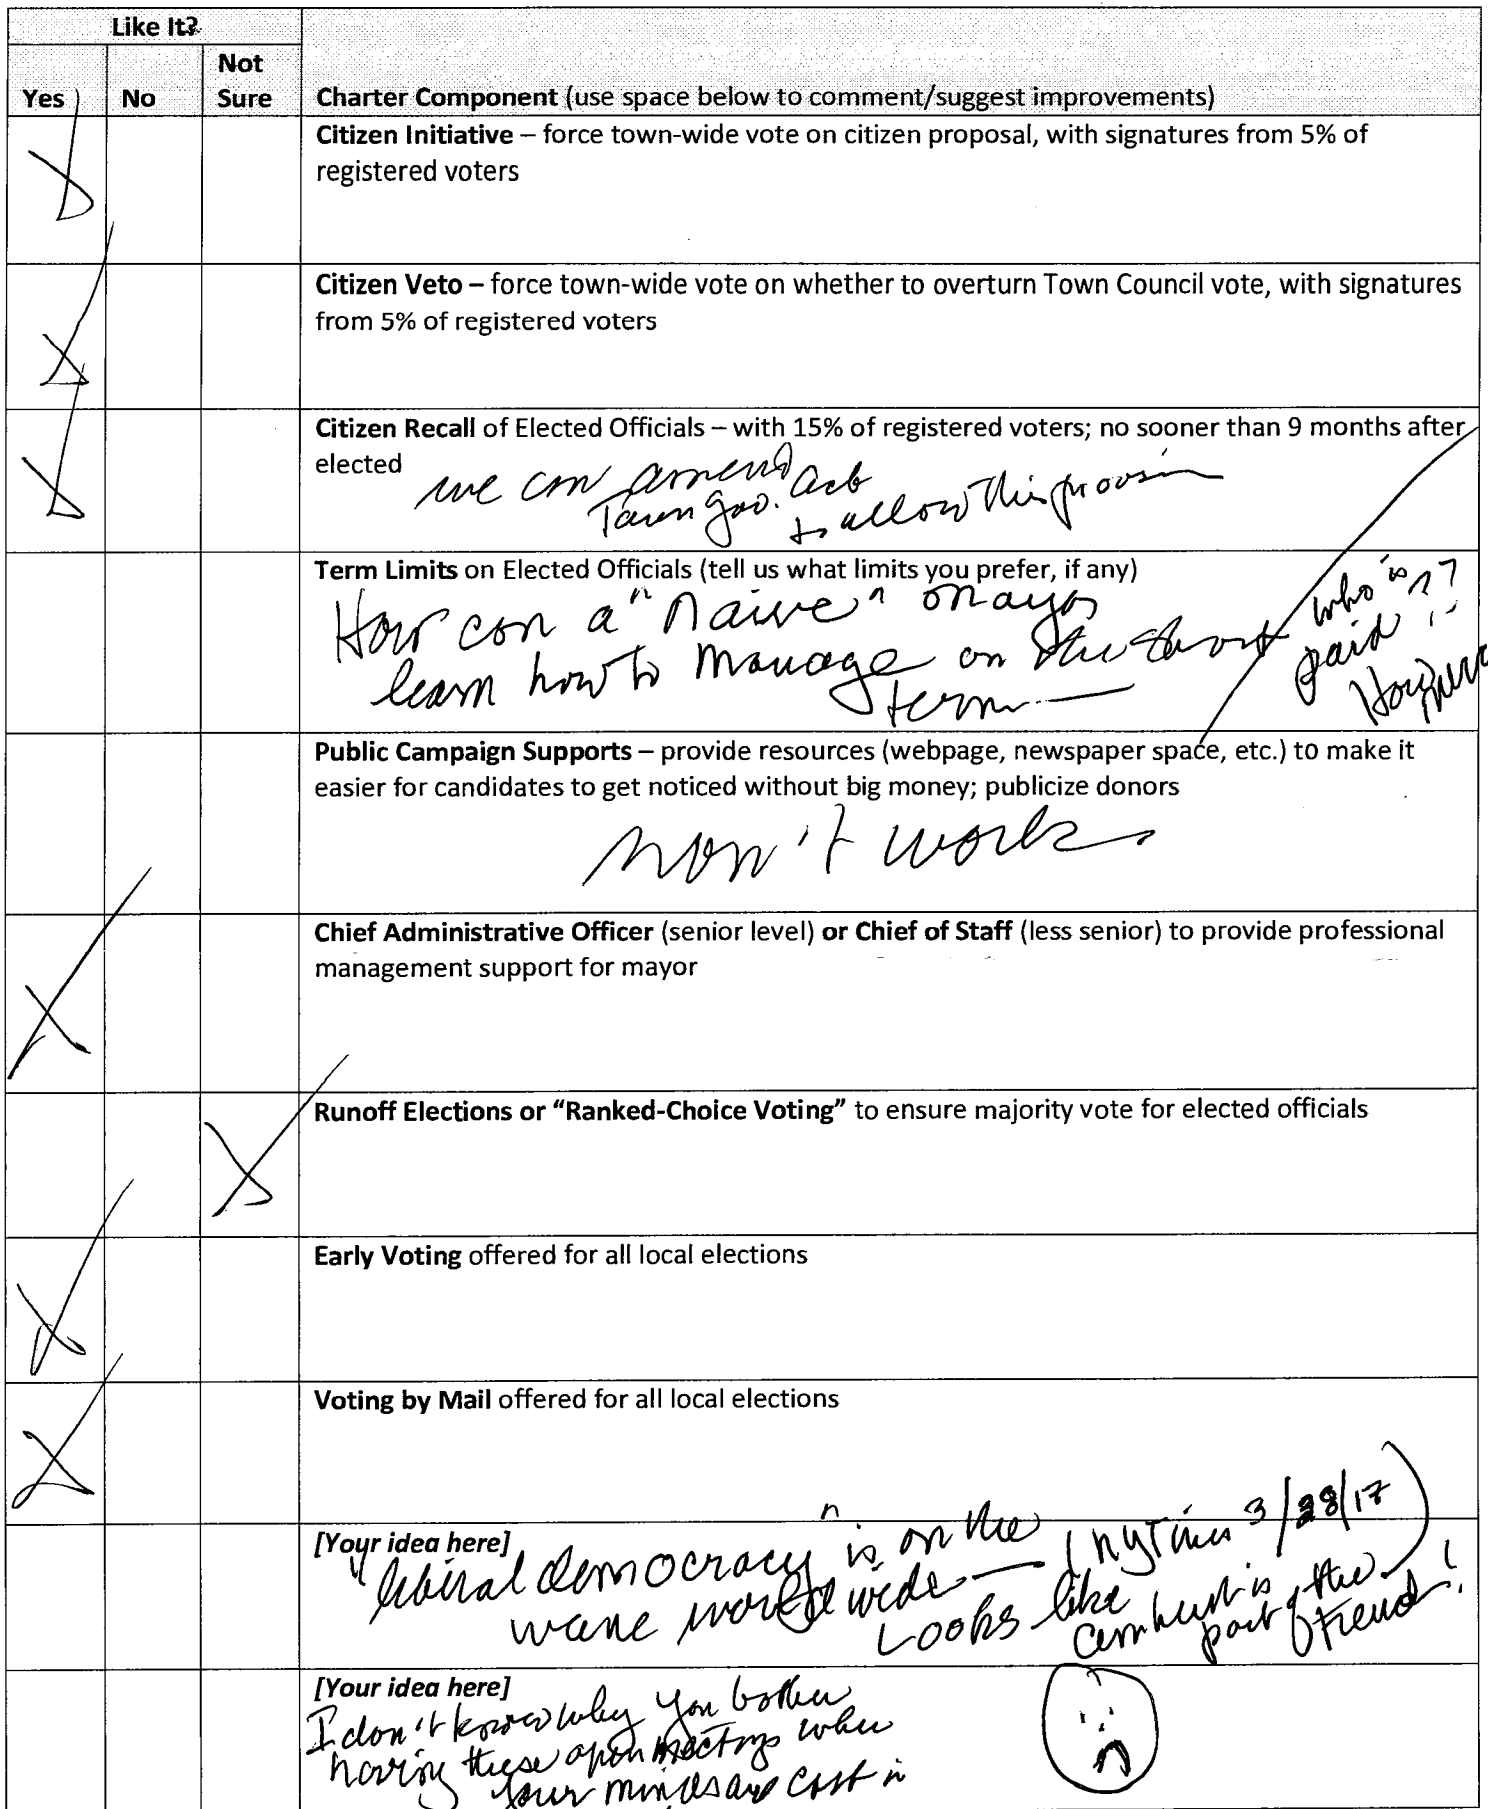 Like It?
Yes No Not Sure Charter Component (use space below to comment/suggest improvements)
Citizen Initiative – force town-wide vote on citizen proposal, with signatures from 5% of
registered voters
Citizen Veto – force town-wide vote on whether to overturn Town Council vote, with signatures
from 5% of registered voters
Citizen Recall of Elected Officials – with 15% of registered voters; no sooner than 9 months after
elected
we can amend
Town gov. act
to allow this
Term Limits on Elected Officials (tell us what limits you prefer, if any)
How can a "naive" mayor
learn how to manage on the short
term
who is
paid ??
How
Public Campaign Supports – provide resources (webpage, newspaper space, etc.) to make it
easier for candidates to get noticed without big money; publicize donors
won't work
Chief Administrative Officer (senior level) or Chief of Staff (less senior) to provide professional
management support for mayor
Runoff Elections or “Ranked-Choice Voting” to ensure majority vote for elected officials
Early Voting offered for all local elections
Voting by Mail offered for all local elections
[Your idea here]
"liberal democracy" is on the
wane worldwide — (NYTimes 3/28/17)
Looks like
Amherst is
part of the
trend!
[Your idea here]
I don't know why you bother
having these open meetings when
your minds are cast in